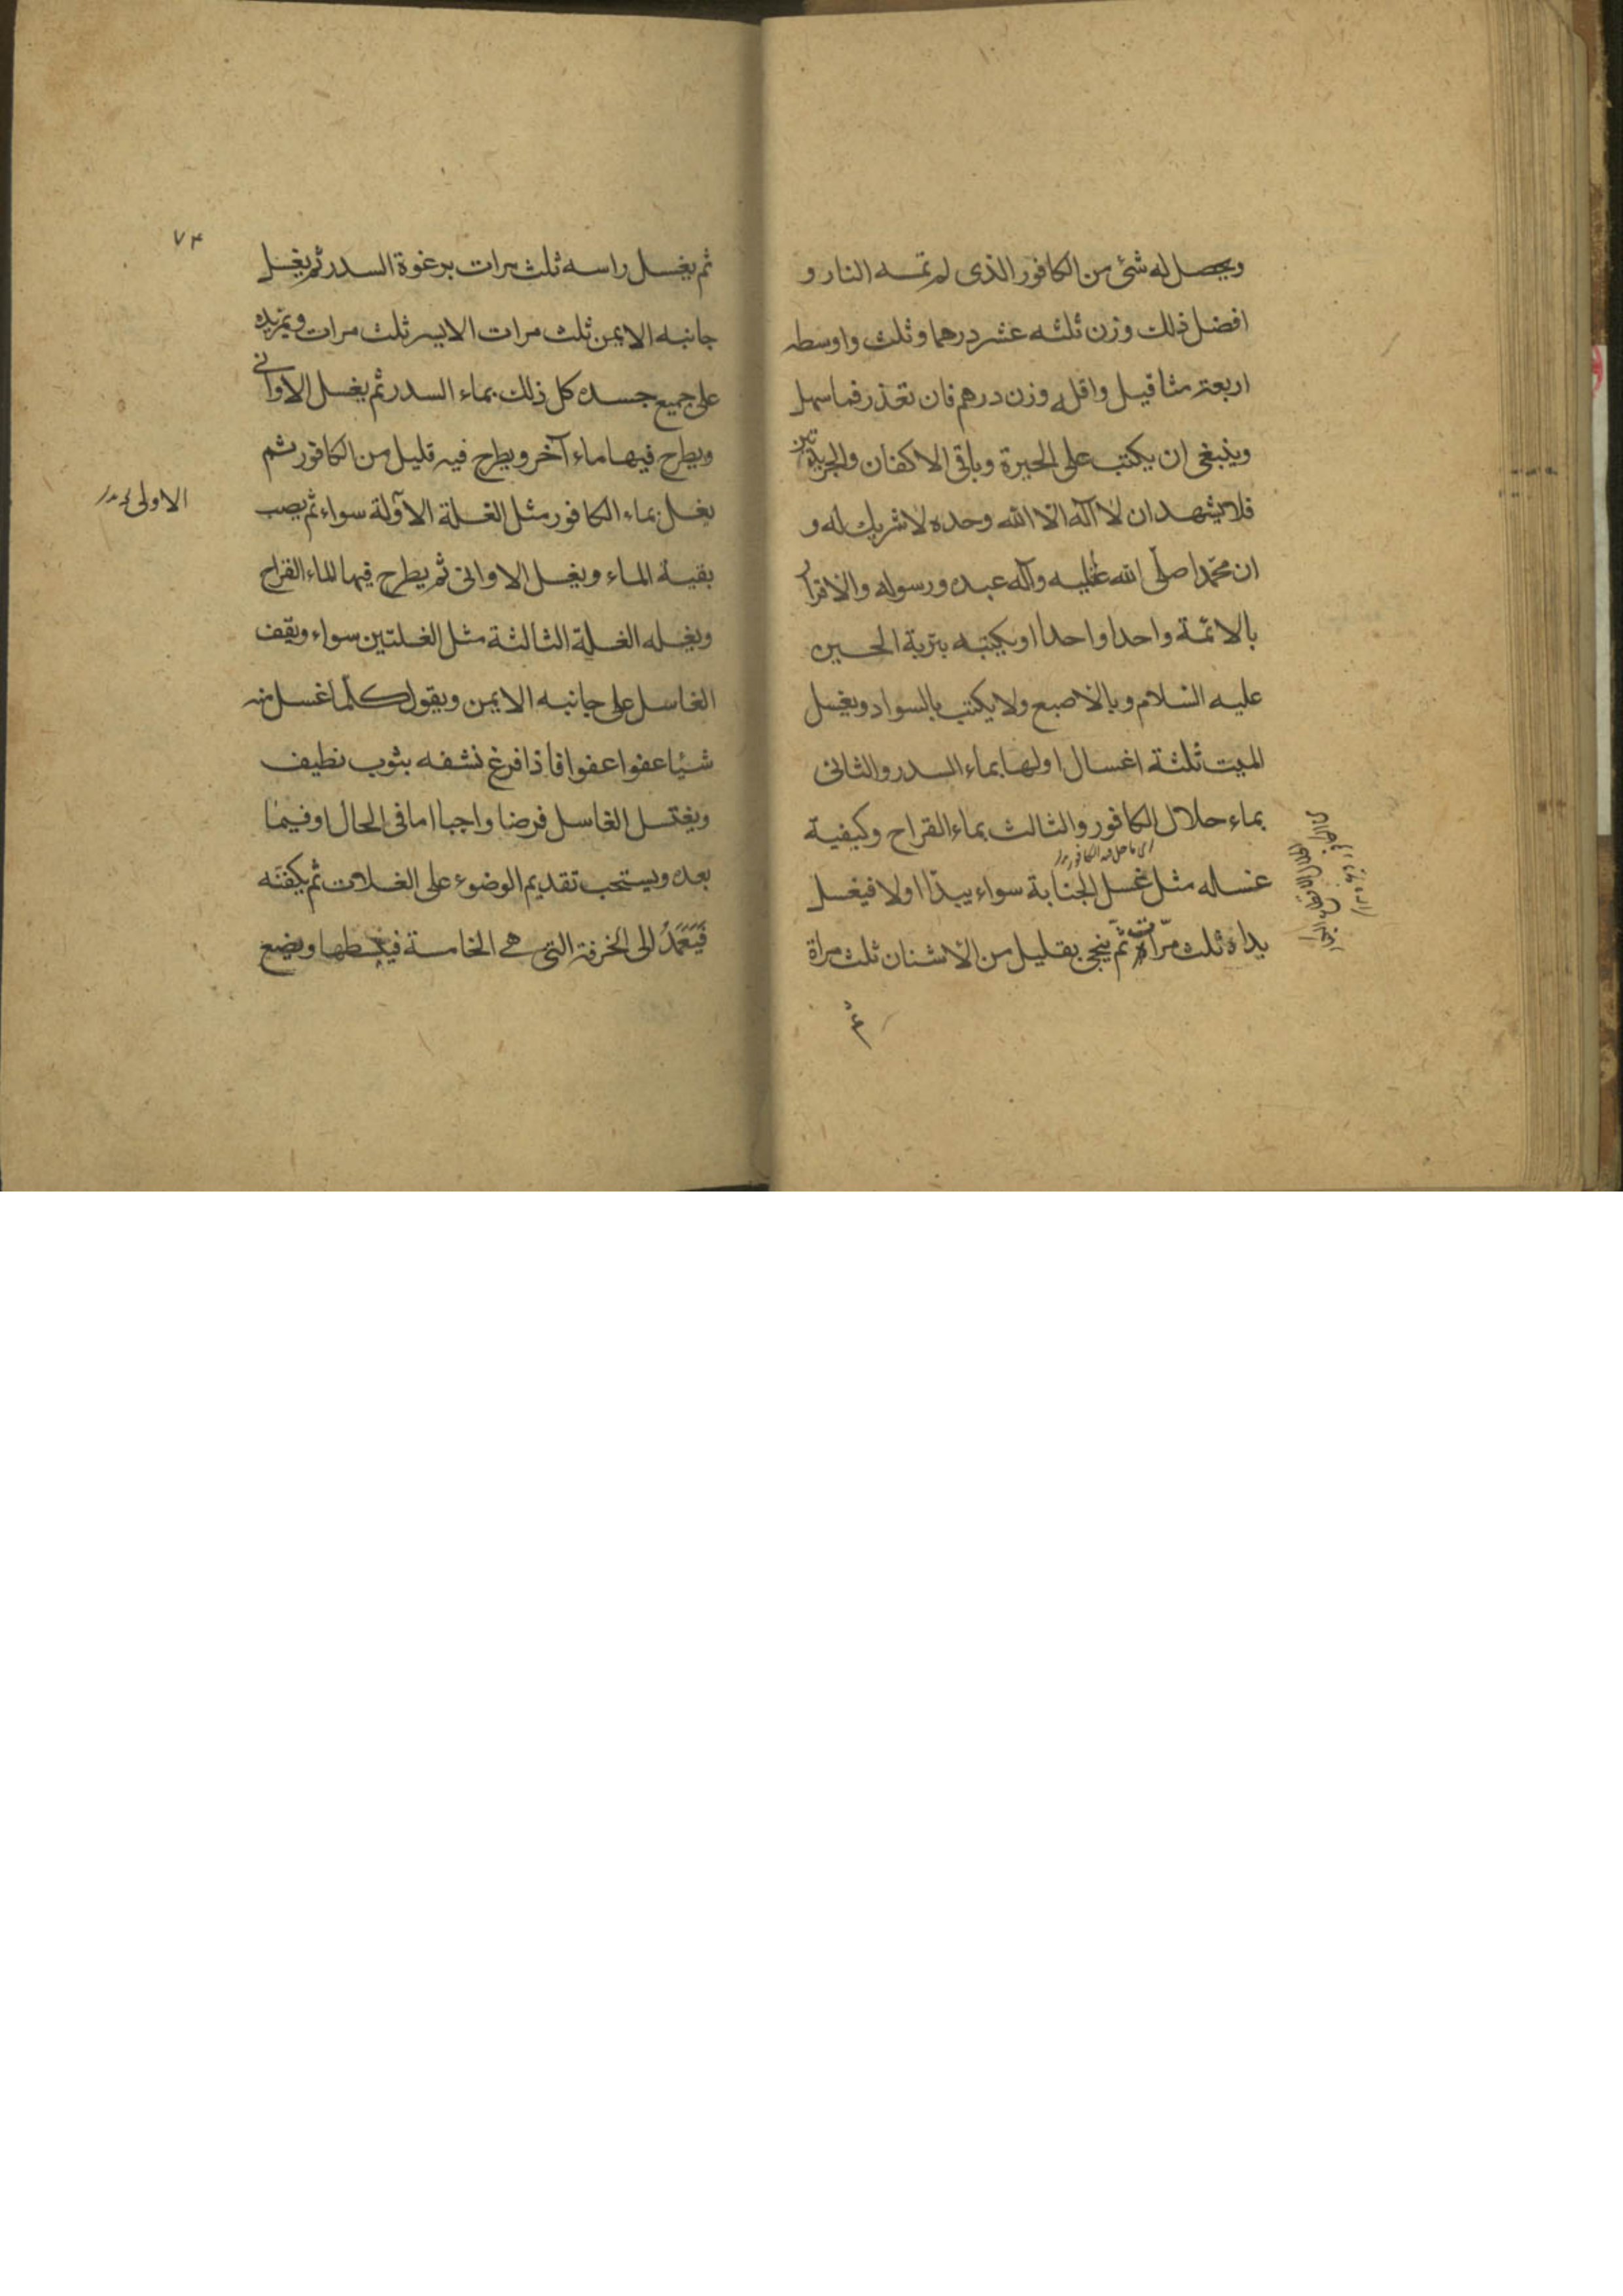 ويحصل له شئ من الكافور الذى لم تمسه النار و
افضل ذلك وزن ثلثه عشر درهما وثلث واوسطه
اربعة مثاقيل واقله وزن درهم فان تعذر فما سهل
وينبغى ان يكتب على الحبرة وباقى الاكفان والجريدتين
فلان يشهد ان لا اله الا الله وحده لا شريك له و
ان محمدا صلى الله عليه وآله عبده ورسوله والاقرار
بالائمة واحدا واحدا ويكتبه بتربة الحسين
عليه السلام وبالاصبع ولا يكتب بالسواد ويغسل
الميت ثلثة اغسال اولها بماء السدر والثانى
بماء حلال الكافور والثالث بماء القراح وكيفية
اى ما حل فيه الكافور
غسله مثل غسل الجنابة سواء يبدأ اولا فيغسل
يداه ثلث مرّات ثم ينجى بقليل من الاشنان ثلث مراة
ثم
٧۴
ثم يغسل راسه ثلث مرات برغوة السدر ثم يغسل
جانبه الايمن ثلث مرات الايسر ثلث مرات ويمر يده
على جميع جسده كل ذلك بماء السدر ثم يغسل الاوانى
ويطرح فيها ماء آخر ويطرح فيه قليل من الكافور ثم
يغسل بماء الكافور مثل الغسلة الاولة سواء ثم يصب
الاولى
بقية الماء ويغسل الاوانى ثم يطرح فيها الماء القراح
ويغسله الغسلة الثالثة مثل الغسلتين سواء ويقف
الغاسل على جانبه الايمن ويقول كلما غسل منه
شيئا عفوا عفوا فاذا فرغ نشفه بثوب نظيف
ويغتسل الغاسل فرضا واجبا اما فى الحال او فيما
بعده ويستحب تقديم الوضوء على الغسلات ثم يكفنه
فَيَعمَدُ الى الخرقة التى هى الخامسة فيبسطها ويضع